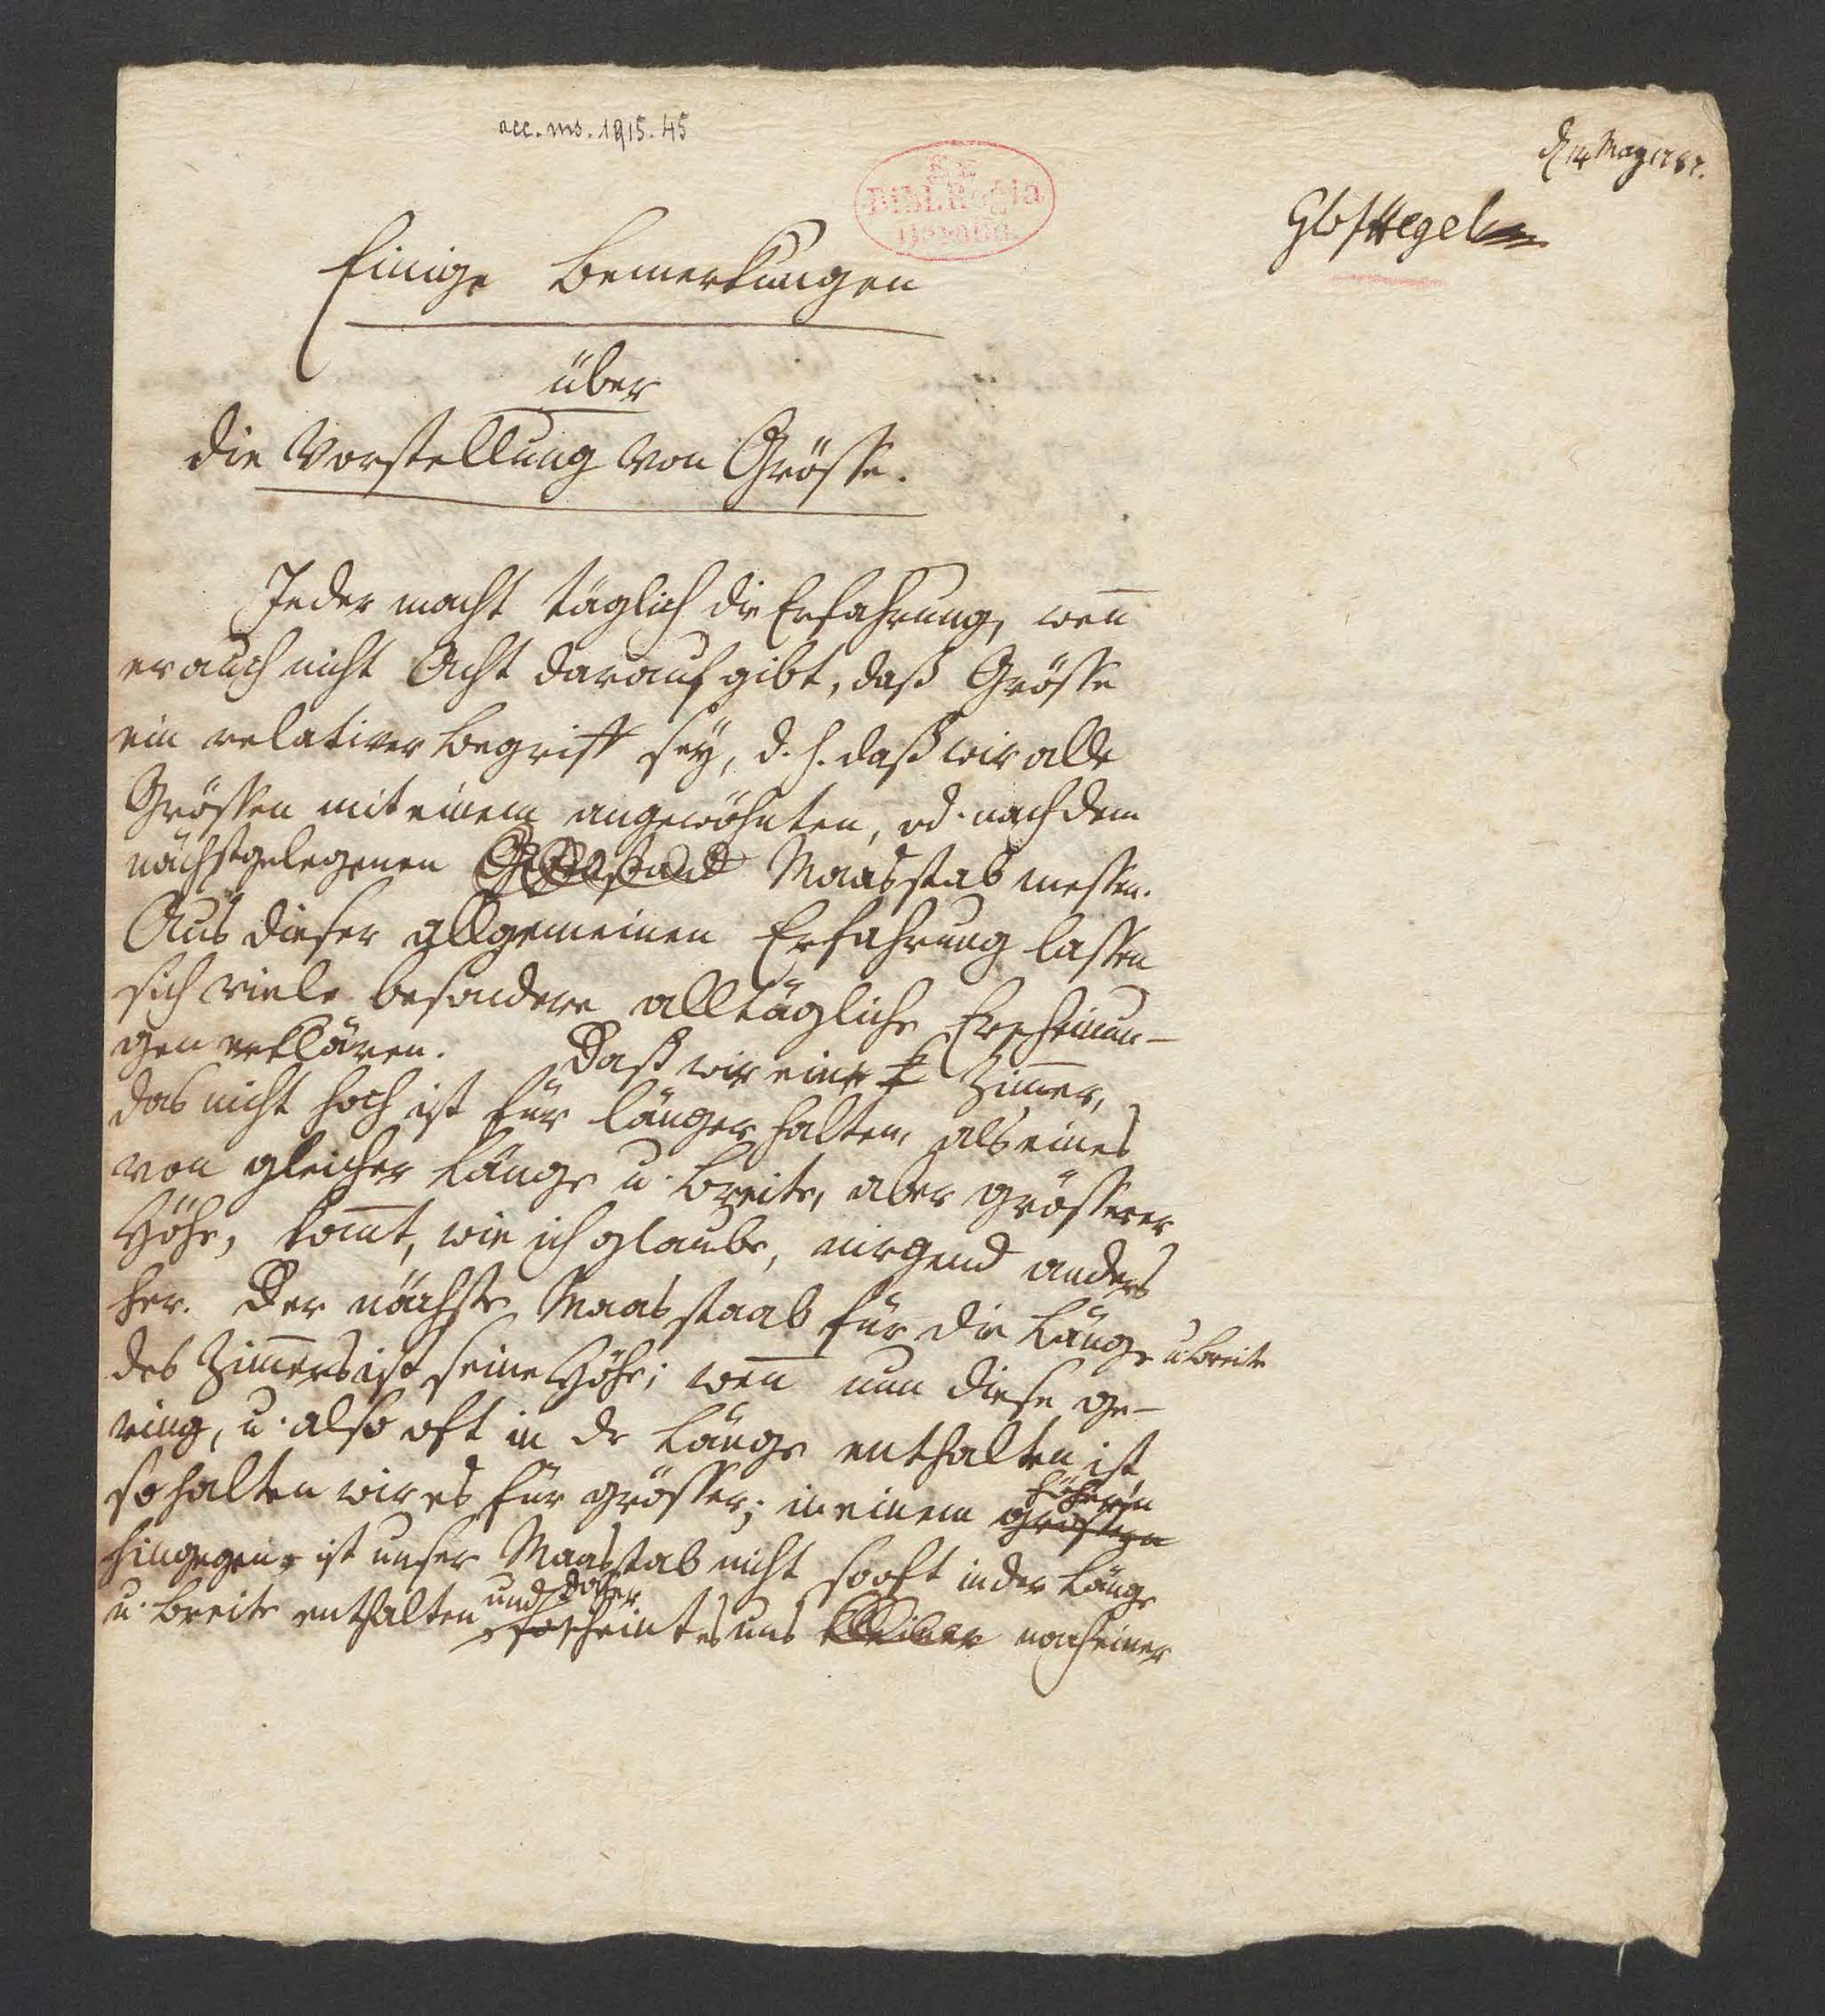 acc. ms. 1915. 45
d. 14 May 1787.
Hegel
Einige Bemerkungen
über
die Vorstellung von Grösse.
Jeder macht täglich die Erfahrung, weñ
er auch nicht Acht darauf gibt, daß Grösse
ein relativer Begriff sey, d. h. daß wir alle
Grössen mit einem angewöhnten, od. nach dem
nächstgelegenen Maasstab messen.
Aus dieser allgemeinen Erfahrung lassen
sich viele besondere alltägliche Erscheinun-
gen erklären. Daß wir ein Zim̄er,
das nicht hoch ist für länger halten, als eines
von gleicher Länge u. Breite, aber grösserer
Höhe, kom̄t, wie ich glaube, nirgend anders
her. Der nächste Maasstaab für die Länge u Breite
des Zim̄ers ist seine Höhe; weñ nun diese ge-
ring, u. also oft in dr Länge enthalten ist,
so halten wir es für grösser; in einem grössern höhern
hingegen ist unser Maasstab nicht so oft in der Länge
u. Breite enthalten und daher scheint es uns kleiner nach einer